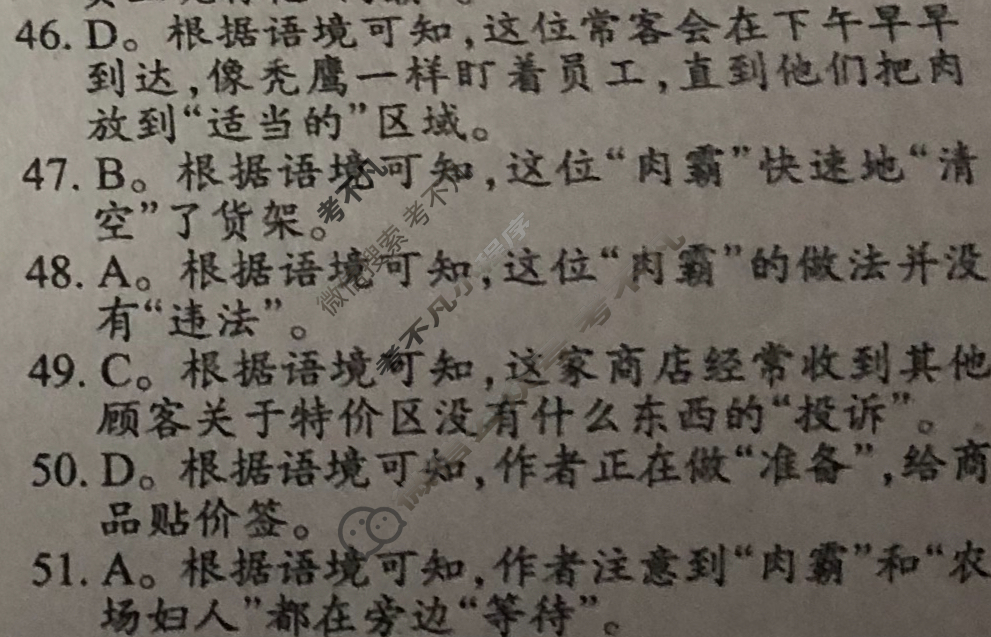 46. D。根据语境可知,这位常客会在下午早早
到达,像秃鹰一样盯着员工,直到他们把肉
放到“适当的”区域。
47. B。根据语境可知,这位“肉霸”快速地“清
空”了货架。
48. A。根据语境可知,这位“肉霸”的做法并没
有“违法”。
49. C。根据语境可知,这家商店经常收到其他
顾客关于特价区没有什么东西的“投诉”。
50. D。根据语境可知,作者正在做“准备”,给商
品贴价签。
51. A。根据语境可知,作者注意到“肉霸”和“农
场妇人”都在旁边“等待”。
微信搜索 考不凡
考不凡小程序